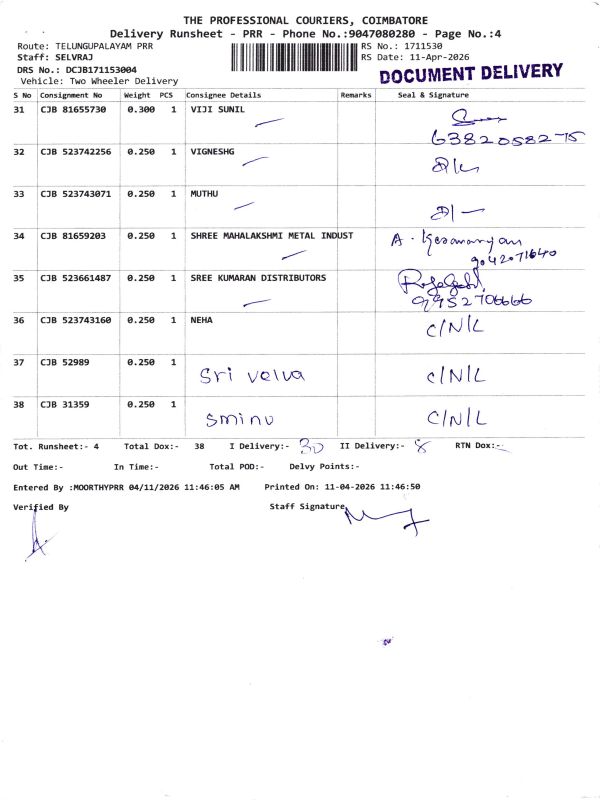 THE PROFESSIONAL COURIERS, COIMBATORE
Delivery Runsheet - PRR - Phone No.:9047080280 - Page No.:4
Route: TELUNGUPALAYAM PRR RS No.: 1711530
Staff: SELVRAJ RS Date: 11-Apr-2026
DRS No.: DCJB171153004 DOCUMENT DELIVERY
Vehicle: Two Wheeler Delivery
S No Consignment No Weight PCS Consignee Details Remarks Seal & Signature
31 CJB 81655730 0.300 1 VIJI SUNIL
6382058275
32 CJB 523742256 0.250 1 VIGNESHG
33 CJB 523743071 0.250 1 MUTHU
34 CJB 81659203 0.250 1 SHREE MAHALAKSHMI METAL INDUST A.
9042071640
35 CJB 523661487 0.250 1 SREE KUMARAN DISTRIBUTORS
9952706666
36 CJB 523743160 0.250 1 NEHA C/N/L
37 CJB 52989 0.250 1 Sri velva C/N/L
38 CJB 31359 0.250 1 sminu C/N/L
Tot. Runsheet:- 4 Total Dox:- 38 I Delivery:- 30 II Delivery:- 8 RTN Dox:-
Out Time:- In Time:- Total POD:- Delvy Points:-
Entered By :MOORTHYPRR 04/11/2026 11:46:05 AM Printed On: 11-04-2026 11:46:50
Verified By Staff Signature